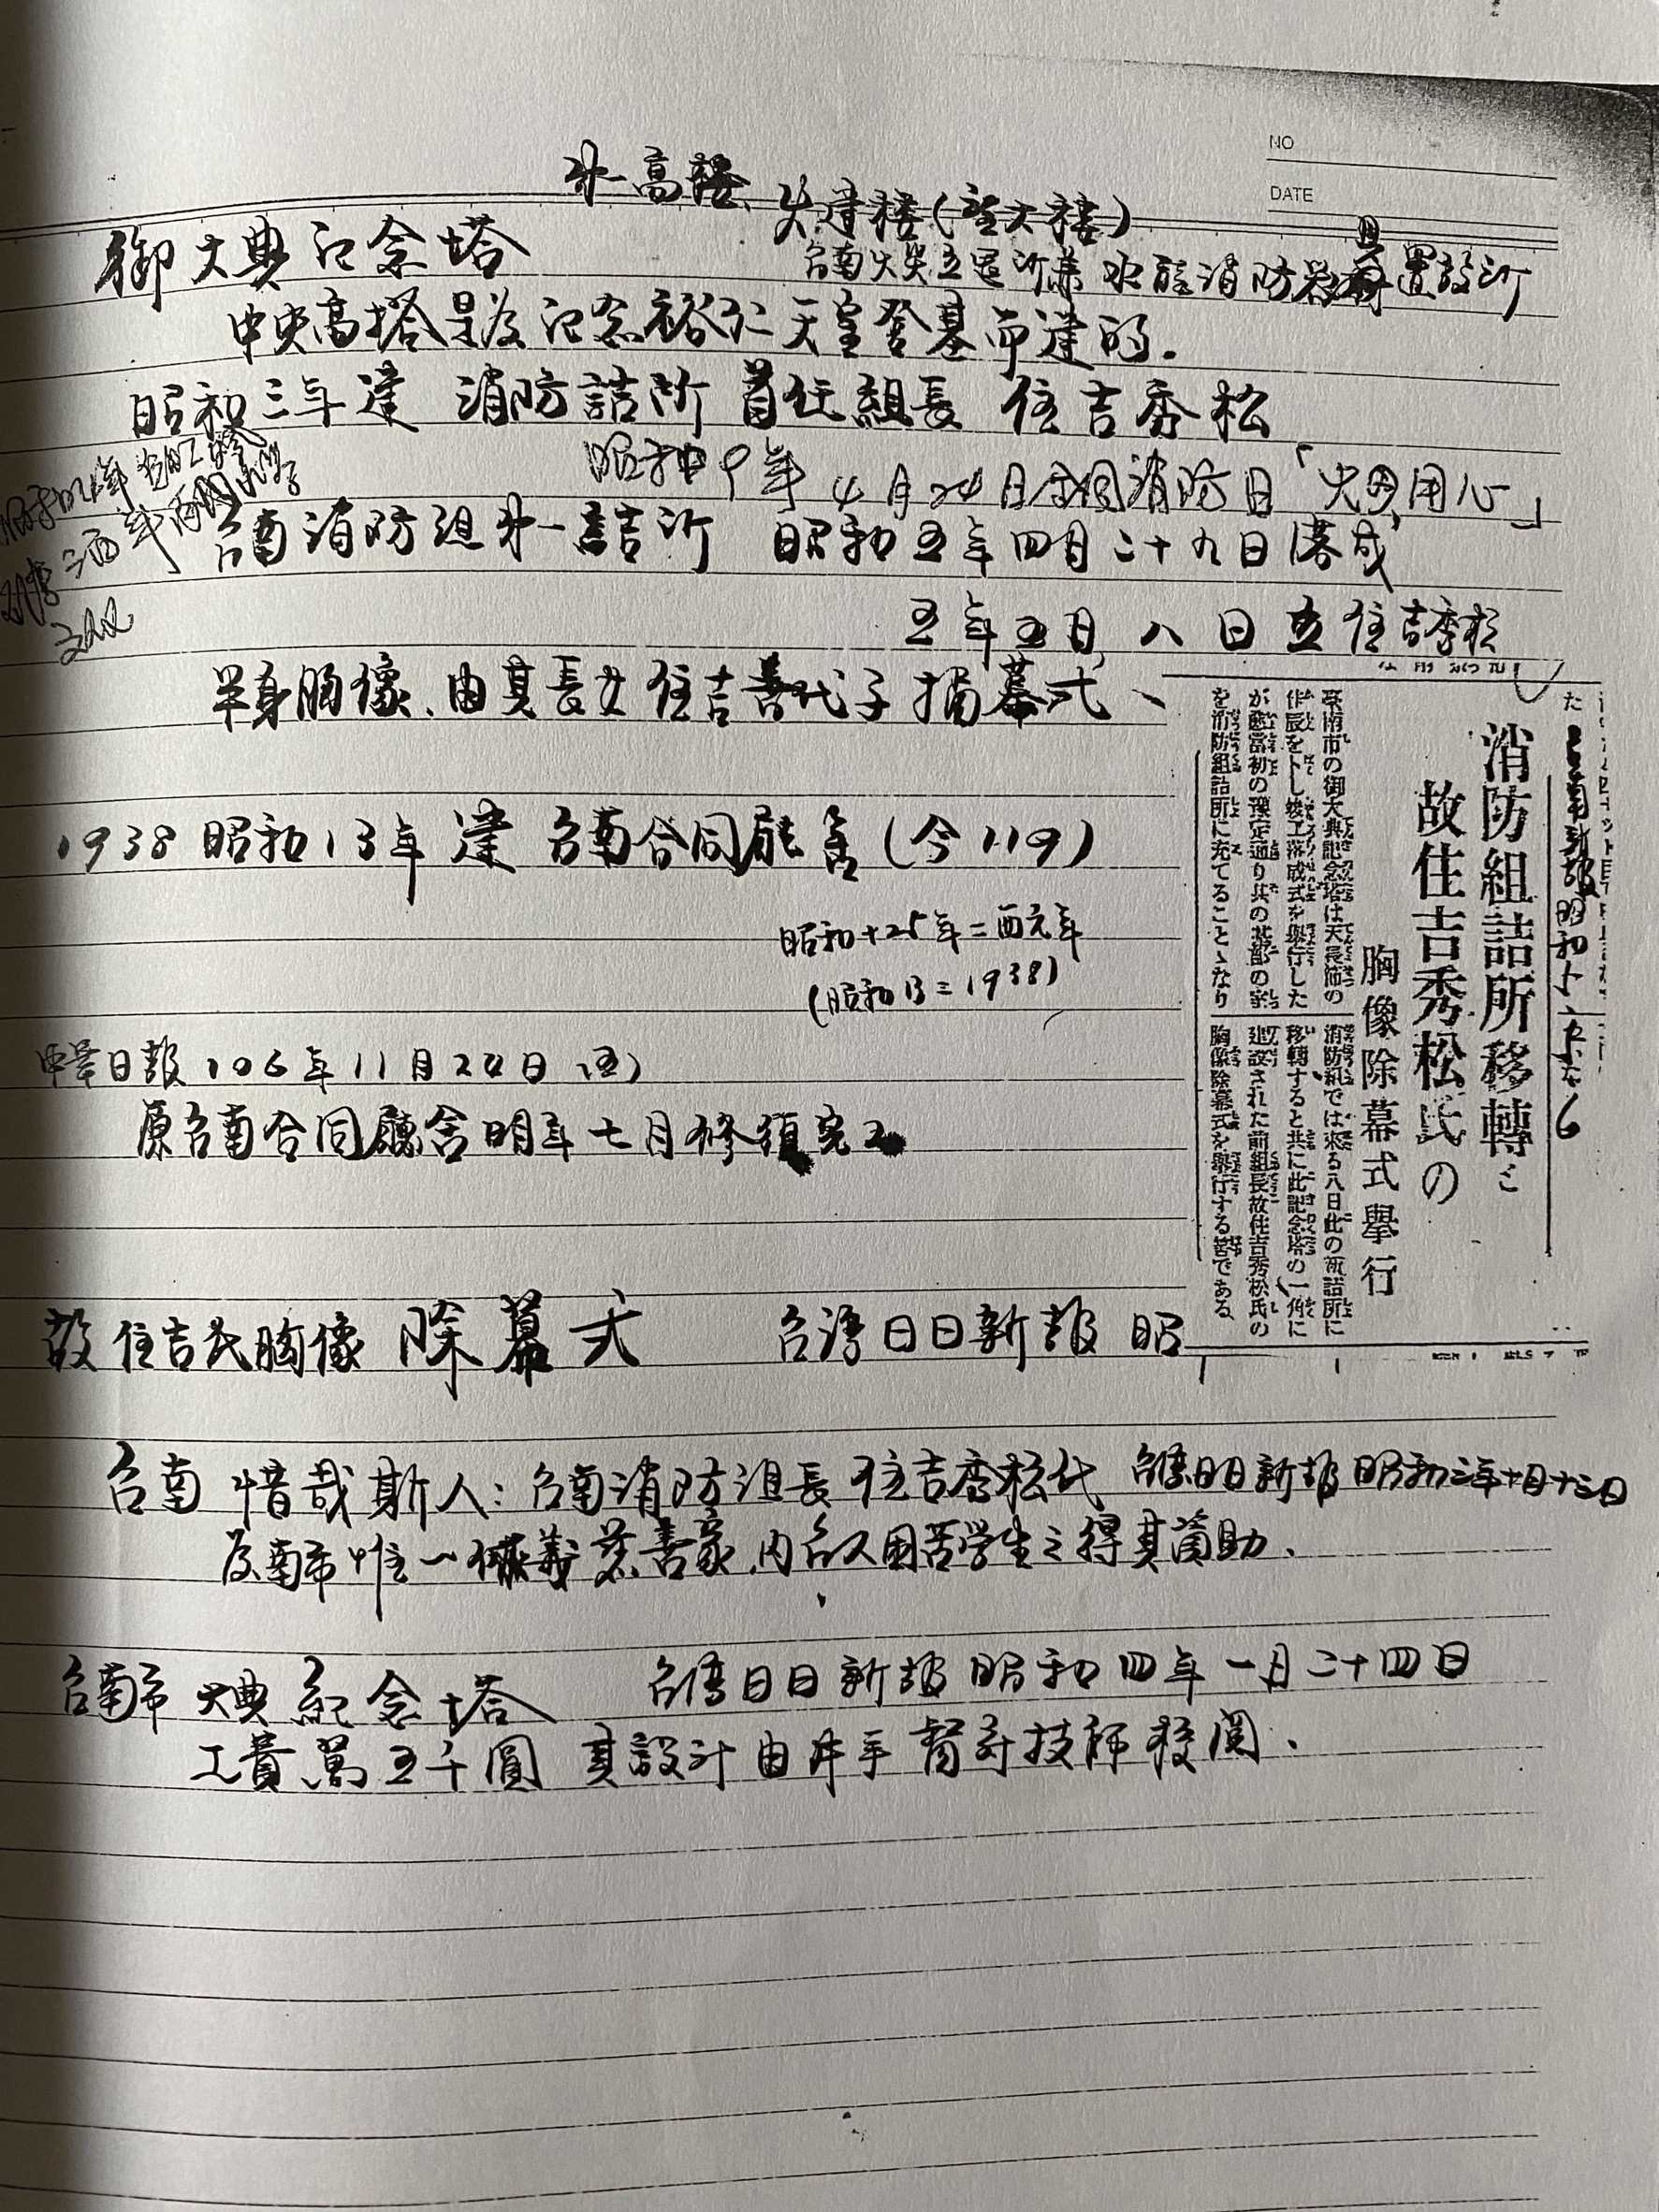 NO
DATE
高樓、火見樓(望火樓)
御大典記念塔
中央高塔是為記念裕仁天皇登基而建的.
昭和三年建 消防詰所 首任組長 住吉秀松
4月24日全国消防日「火の用心」
台南消防組 詰所 昭和五年四月二十九日落成
五年五月八日立住吉秀松
半身胸像、由其長女住吉喜代子揭幕式、
1938昭和13年 建 台南合同廳舍(今119)
昭和+25年=西元年
(昭和13=1938)
中華日報106年11月24日(五)
原台南合同廳舍明年七月修復完工
故住吉氏胸像 除幕式 台灣日日新報 昭
台南 惜哉斯人:台南消防組長 住吉秀松氏 台湾日日新報 昭和三年十月十三日
為南市惟一 義慈善家、內台人困苦学生之得其資助、
台南市 大典紀念塔 台湾日日新報 昭和四年一月二十四日
工費萬五千圓 其設計由井手 技師校閱、
台南新報 昭和
消防組詰所移轉と
故住吉秀松氏の
胸像除幕式擧行
臺南市の御大典記念塔は天長節の
佳辰をトし竣工落成式を擧行した
が愈當初の豫定通り其の基部の室
を消防組詰所に充てることゝなり
消防組では來る八日此の新詰所に
移轉すると共に此記念塔の一角に
建設された前組長故住吉秀松氏の
胸像除幕式を擧行する筈である